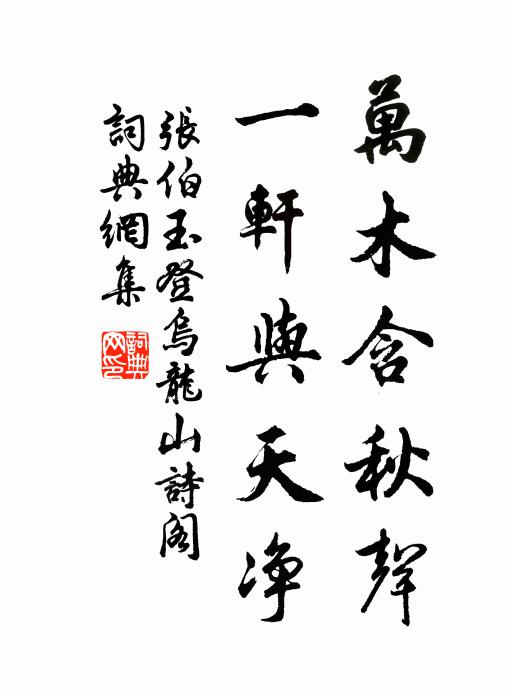 萬木含秋聲
一軒與天净
張伯玉登烏龍山詩閣
詞典網集
詞典网印